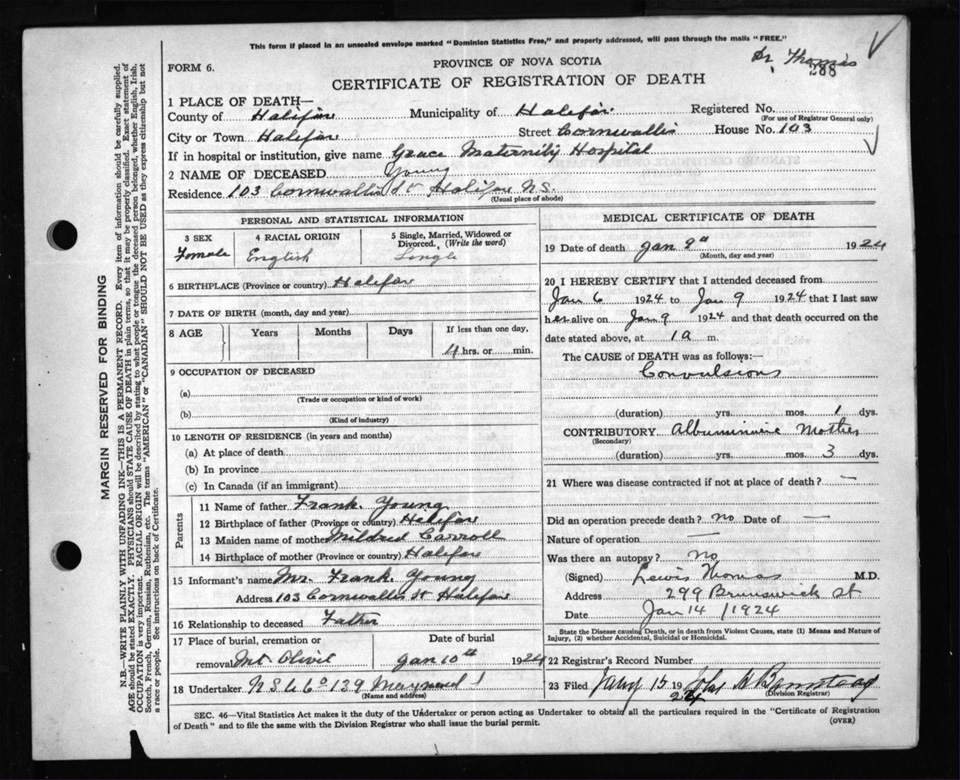 This form if placed in an unsealed envelope marked "Dominion Statistics Free," and properly addressed, will pass through the mails "FREE."
Dr. Thomas
288
FORM 6.
PROVINCE OF NOVA SCOTIA
CERTIFICATE OF REGISTRATION OF DEATH
1 PLACE OF DEATH—
County of Halifax Municipality of Halifax Registered No.
(For use of Registrar General only)
City or Town Halifax Street Cornwallis House No. 103
If in hospital or institution, give name Grace Maternity Hospital
2 NAME OF DECEASED Young
Residence 103 Cornwallis St Halifax N.S.
(Usual place of abode)
PERSONAL AND STATISTICAL INFORMATION
3 SEX 4 RACIAL ORIGIN 5 Single, Married, Widowed or Divorced, (Write the word)
Female English Single
6 BIRTHPLACE (Province or country) Halifax
7 DATE OF BIRTH (month, day and year)
8 AGE Years Months Days If less than one day,
4 hrs. or min.
9 OCCUPATION OF DECEASED
(a)
(Trade or occupation or kind of work)
(b)
(Kind of industry)
10 LENGTH OF RESIDENCE (in years and months)
(a) At place of death
(b) In province
(c) In Canada (if an immigrant)
Parents
11 Name of father Frank Young
12 Birthplace of father (Province or country) Halifax
13 Maiden name of mother Mildred Carroll
14 Birthplace of mother (Province or country) Halifax
15 Informant's name Mr. Frank Young
Address 103 Cornwallis St Halifax
16 Relationship to deceased Father
17 Place of burial, cremation or Date of burial
removal Mt Olivit Jan 10th 1924
18 Undertaker N S U Co 139 Maynard
(Name and address)
MEDICAL CERTIFICATE OF DEATH
19 Date of death Jan 9th 1924
(Month, day and year)
20 I HEREBY CERTIFY that I attended deceased from
Jan 6 1924 to Jan 9 1924 that I last saw
her alive on Jan 9 1924 and that death occurred on the
date stated above, at 1a m.
The CAUSE of DEATH was as follows:—
Convulsions
(duration) yrs. mos. 1 dys.
CONTRIBUTORY Mother
(Secondary)
(duration) yrs. mos. 3 dys.
21 Where was disease contracted if not at place of death? —
Did an operation precede death? No Date of —
Nature of operation —
Was there an autopsy? No
(Signed) Lewis Thomas M.D.
Address 299 Brunswick St
Date Jan 14 / 1924
State the Disease causing Death, or in death from Violent Causes, state (1) Means and Nature of
Injury, (2) whether Accidental, Suicidal or Homicidal.
22 Registrar's Record Number
23 Filed Jany 15 1924
(Division Registrar)
SEC. 46—Vital Statistics Act makes it the duty of the Undertaker or person acting as Undertaker to obtain all the particulars required in the "Certificate of Registration
of Death" and to file the same with the Division Registrar who shall issue the burial permit.
(OVER)
MARGIN RESERVED FOR BINDING
N.B.—WRITE PLAINLY WITH UNFADING INK—THIS IS A PERMANENT RECORD. Every item of information should be carefully supplied.
AGE should be stated EXACTLY. PHYSICIANS should STATE CAUSE OF DEATH in plain terms, so that it may be properly classified. Exact statement of
OCCUPATION is very important. RACIAL ORIGIN will be described by stating to what people or tongue the deceased person belonged, whether English, Irish,
Scotch, French, German, Russian, Ruthenian, etc. The terms "AMERICAN" or "CANADIAN" SHOULD NOT BE USED as they express citizenship but not
a race or people. See instructions on back of Certificate.